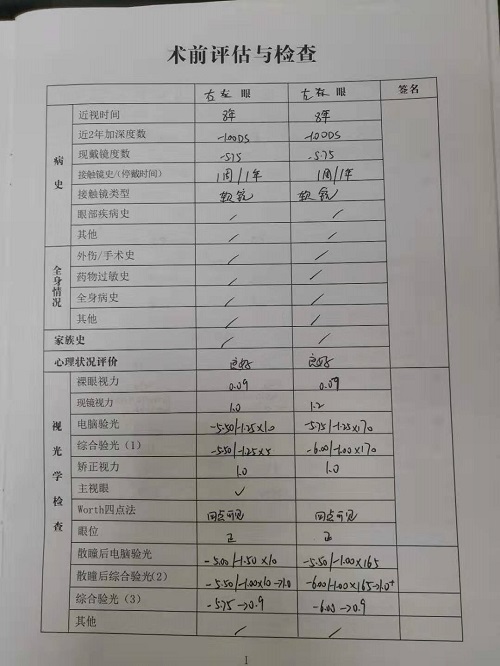 术前评估与检查
眼 眼 签名
病史
近视时间 8年 8年
近2年加深度数 -1.00DS -1.00DS
现戴镜度数 -5.75 -5.75
接触镜史/(停戴时间) 1周/1年 1周/1年
接触镜类型 软镜 软镜
眼部疾病史 / /
其他 / /
全身情况
外伤/手术史 / /
药物过敏史 / /
全身病史 / /
其他 / /
家族史 / /
心理状况评价 良好 良好
视光学检查
裸眼视力 0.09 0.09
现镜视力 1.0 1.2
电脑验光 -5.50/-1.25×10 -5.75/-1.25×170
综合验光(1) -5.50/-1.25×5 -6.00/-1.00×170
矫正视力 1.0 1.0
主视眼 ✓
Worth四点法 四点可见 四点可见
眼位 正 正
散瞳后电脑验光 -5.00/-1.50×10 -5.50/-1.00×165
散瞳后综合验光(2) -5.50/-1.00×10→1.0 -6.00/-1.00×165→1.0⁺
综合验光(3) -5.75→0.9 -6.00→0.9
其他 / /
1